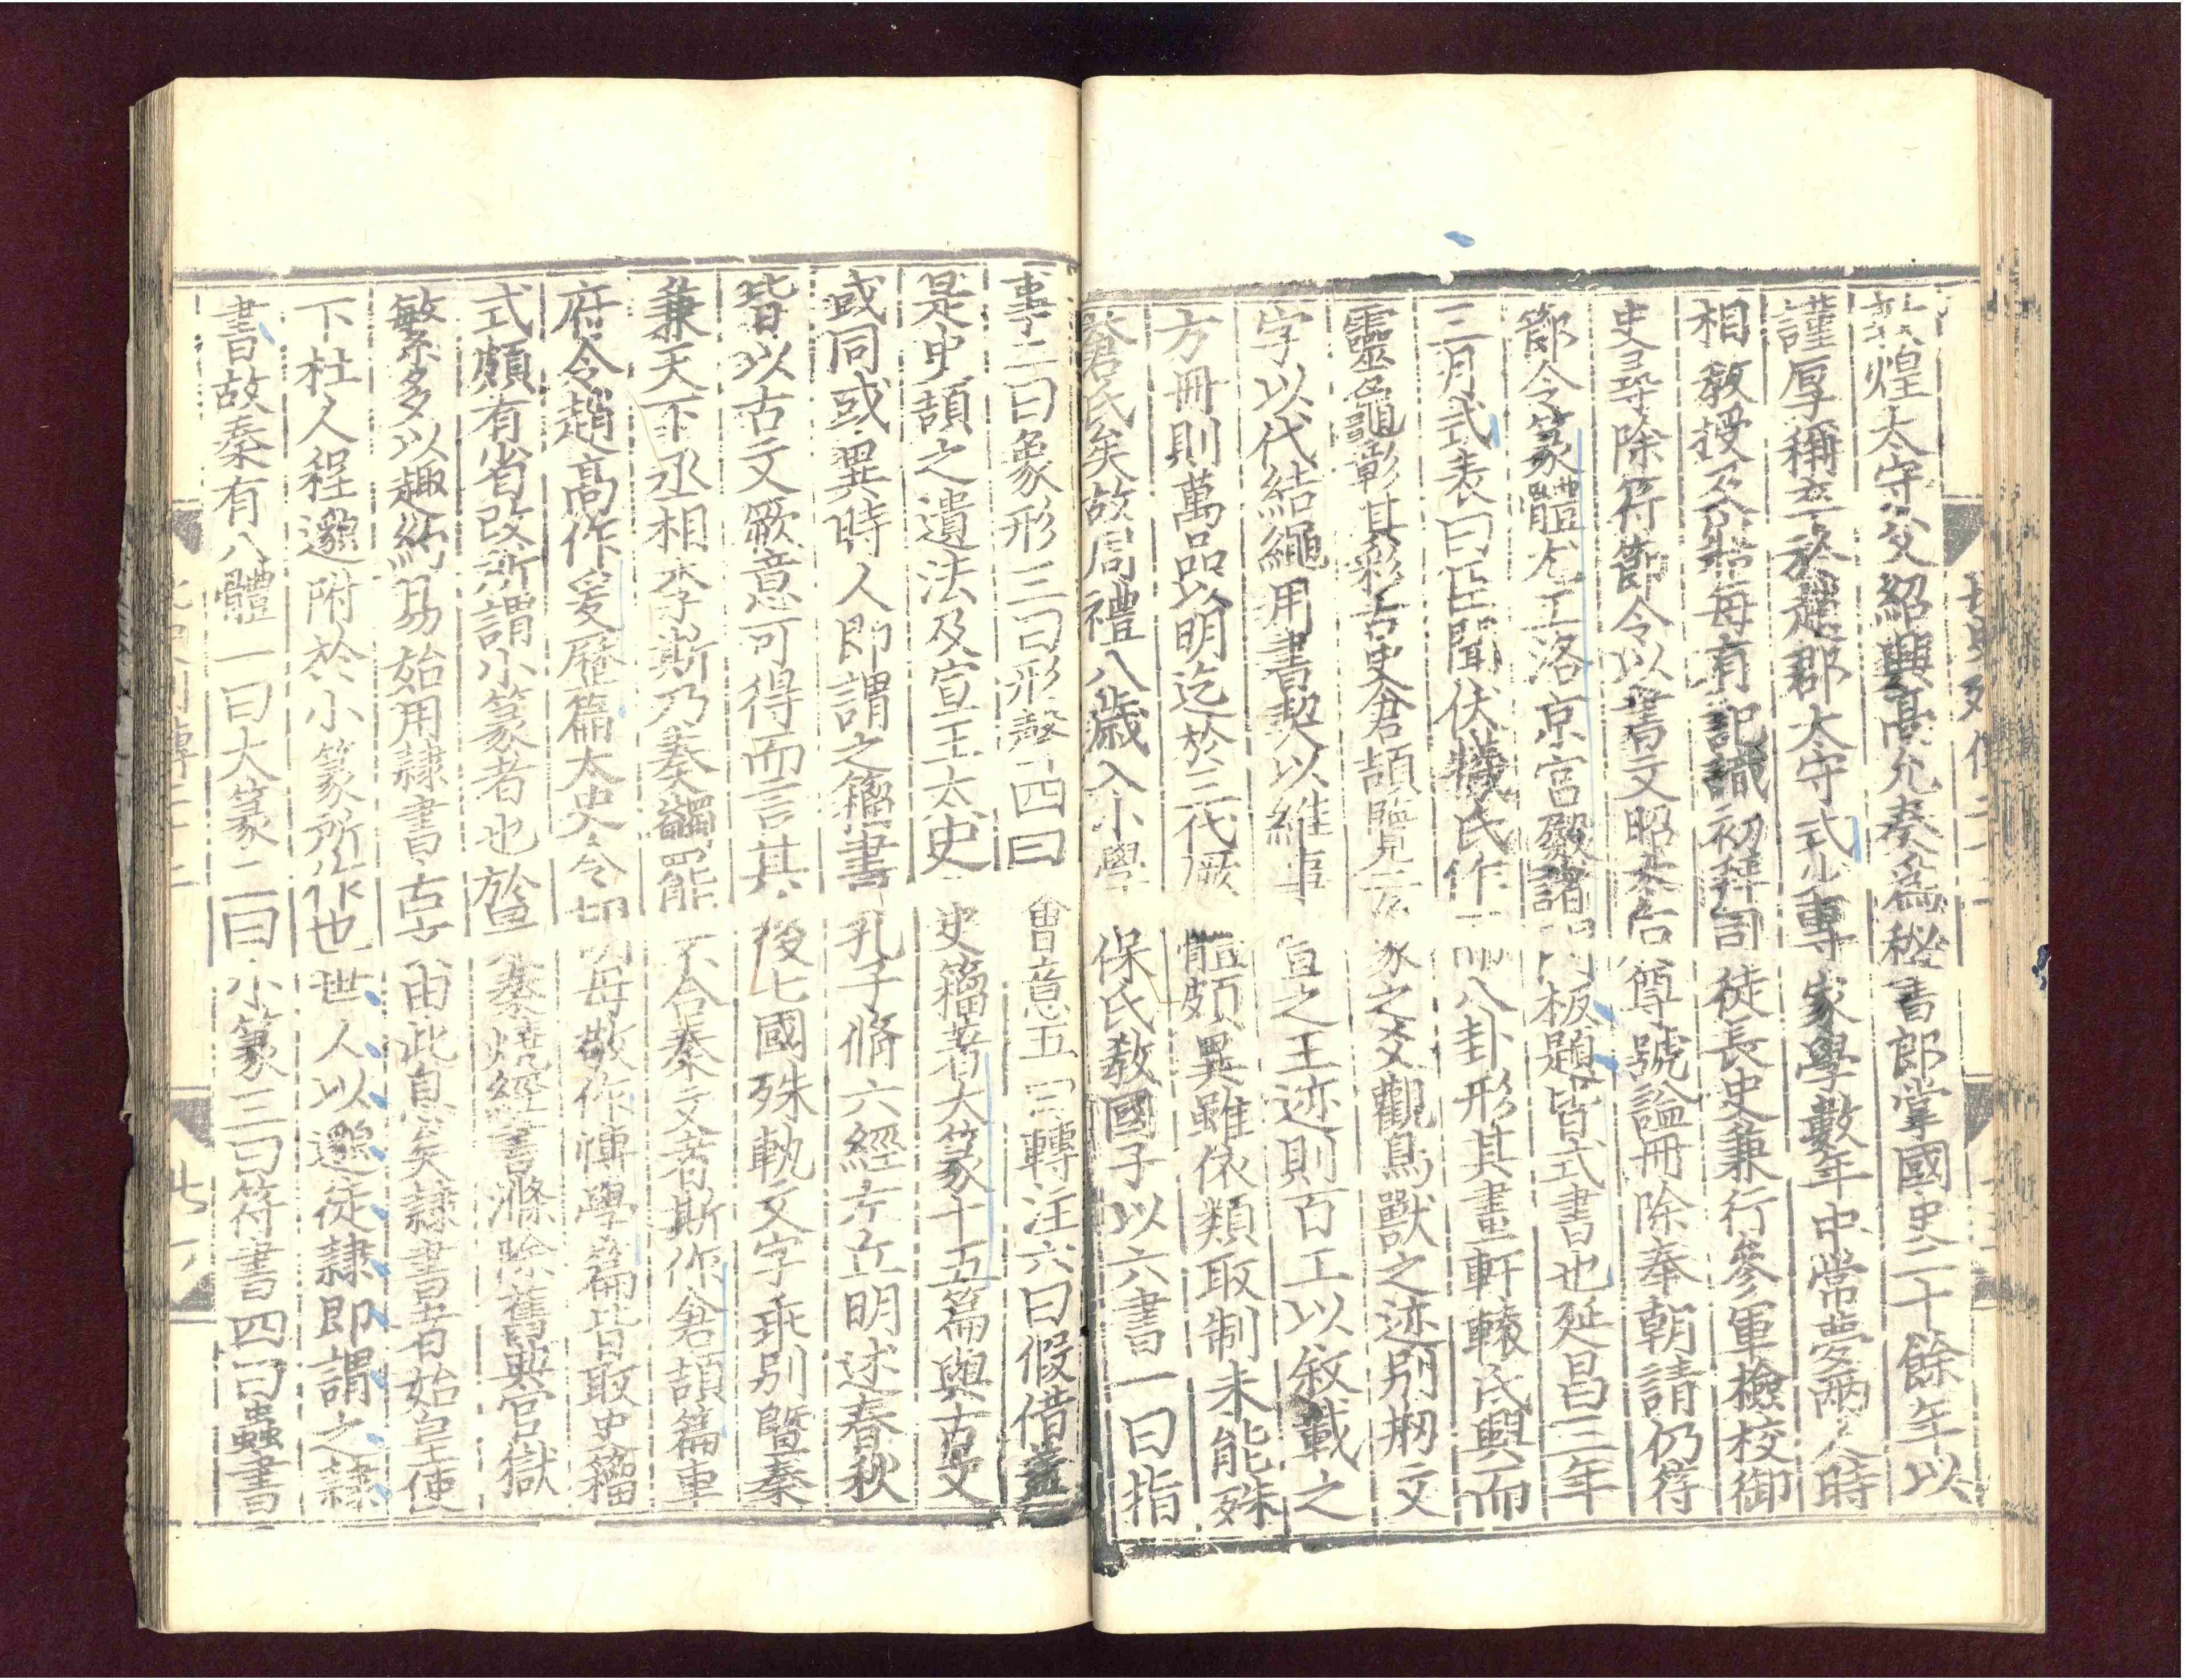 敦煌太守父紹興高允奏爲秘書郎掌國史二十餘年以
謹厚稱卒於趙郡太守式少專家學數年中常夢兩人時
相教授及寤每有記識初拜司徒長史兼行參軍檢校御
史尋除符節令以書文昭太后尊號謚冊除奉朝請仍符
節令篆體尤工洛京宮殿諸門板題皆式書也延昌三年
三月式表曰臣聞伏犧氏作而八卦形其畫軒轅氏興而
靈龜彰其彩古史倉頡覽二象之爻觀鳥獸之迹別刱文
字以代結繩用書契以維事宣之王迹則百工以敘載之
方冊則萬品以明迄於三代厥體頗異雖依類取制未能殊
蒼氏矣故周禮八歲入小學保氏教國子以六書一曰指
事二曰象形三曰形聲四曰會意五曰轉注六曰假借蓋
是史頡之遺法及宣王太史史籀著大篆十五篇與古文
或同或異時人即謂之籀書孔子脩六經左丘明述春秋
皆以古文厥意可得而言其後七國殊軌文字乖別暨秦
兼天下丞相李斯乃奏蠲罷不合秦文者斯作倉頡篇車
府令趙高作爰歷篇太史令胡毋敬作博學篇皆取史籀
式頗有省改所謂小篆者也於是秦燒經書滌除舊典官獄
繁多以趣約易始用隸書古文由此息矣隸書者始皇使
下杜人程邈附於小篆所作也世人以邈徒隸即謂之隸
書故秦有八體一曰大篆二曰小篆三曰符書四曰蟲書